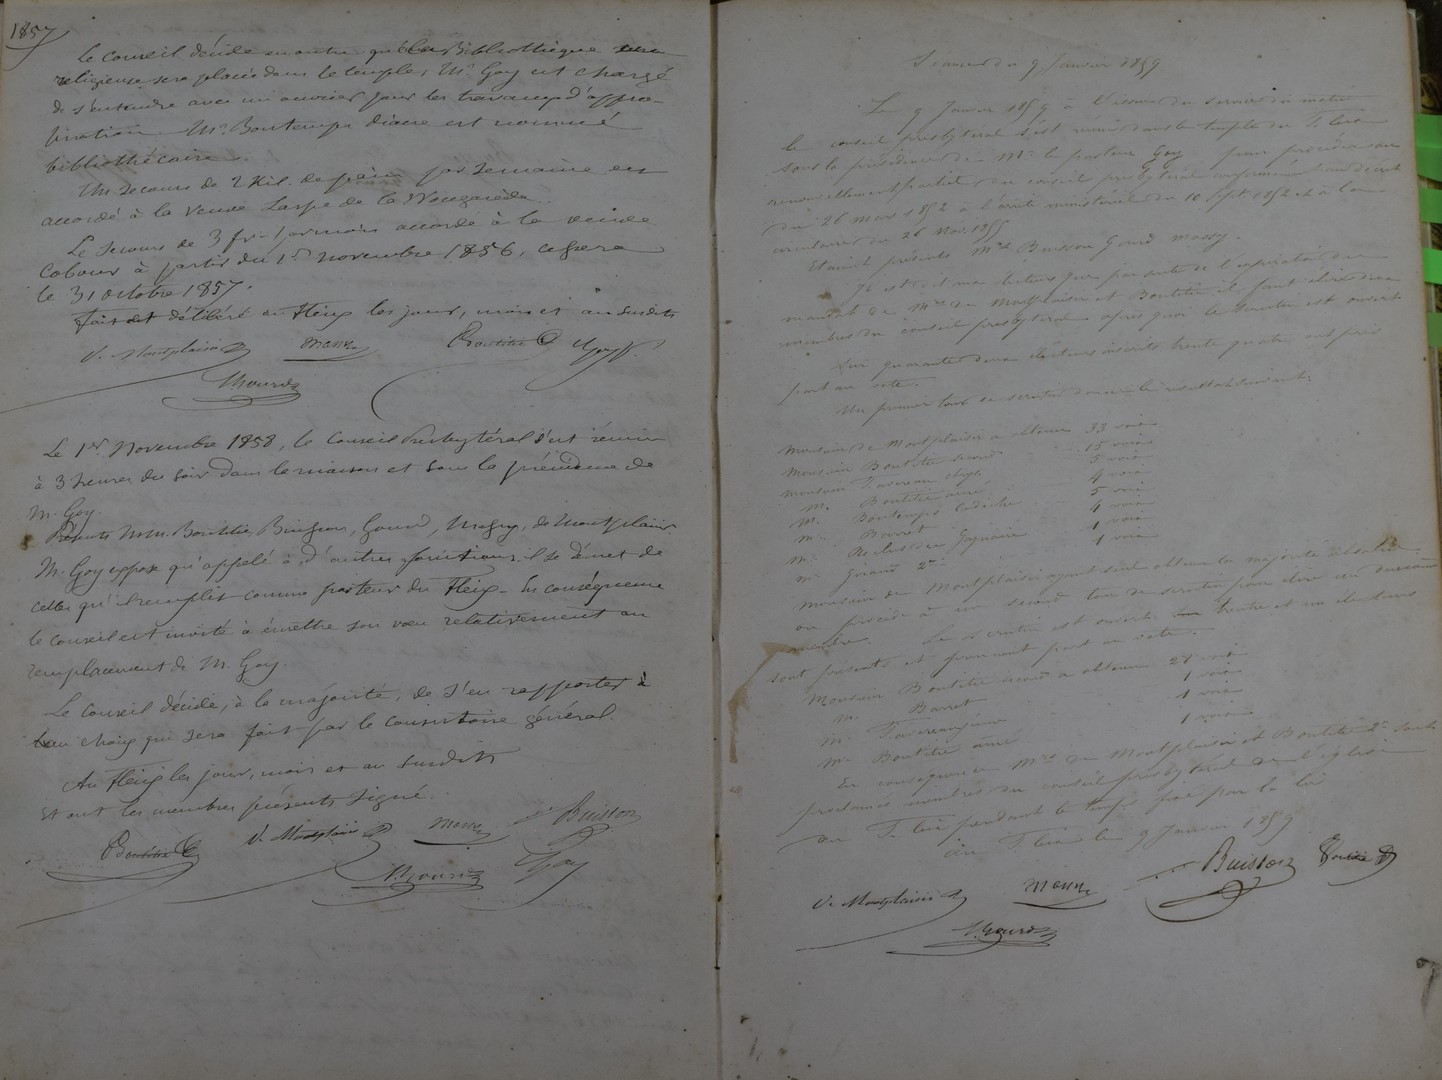 1857
Le Conseil décide en outre qu'une Bibliothèque
religieuse sera placée dans le temple, Mr Goy est chargé
de s'entendre avec un ouvrier pour les travaux d'appro-
priation. Mr Bontemps diacre est nommé
bibliothécaire.
Un secours de 2 Kil. de pain par semaine est
accordé à la veuve Laspe de la
Le secours de 3 fr. par mois accordé à la veuve
Cabour à partir du 1er novembre 1856, cessera
le 31 octobre 1857.
fait et délibéré au Fleix les jour, mois et an susdits
V. Montplaisir Massy Boutitié Goy
Gourd
Le 1er Novembre 1858, le Conseil Presbytéral s'est réuni
à 3 heures du soir dans la maison et sous la présidence de
M. Goy.
Présents M.M. Boutitié, Buisson, Gourd, Massy, de Montplaisir.
M. Goy expose qu'appelé à d'autres fonctions, il se démet de
celles qu'il remplit comme pasteur du Fleix. En conséquence
le conseil est invité à émettre son vœu relativement au
remplacement de M. Goy.
Le Conseil décide, à la majorité, de s'en rapporter à
choix qui sera fait par le consistoire général.
Au Fleix les jour, mois et an susdits
Et ont les membres présents signé.
Boutitié V. Montplaisir Massy Buisson
Gourd Goy
Séance du 9 Janvier 1859
Le 9 Janvier 1859 à l'issue du service du matin
le conseil presbytéral s'est réuni dans le temple du Fleix
sous la présidence de Mr le pasteur Goy pour procéder au
renouvellement partiel du conseil presbytéral conformément au décret
du 26 mars 1852 à l'arrêté ministériel du 10 sept 1852 et à la
circulaire du 26 Nov. 1855
Etaient présents Mrs Buisson Gourd Massy.
électeurs que par suite de l'expiration du
mandat de Mrs de Montplaisir et Boutitié il faut élire deux
membres du conseil presbytéral après quoi le scrutin est ouvert
Sur quarante deux électeurs inscrits trente quatre ont pris
part au vote.
Un premier tour de scrutin donne le résultat suivant:
Monsieur de Montplaisir a obtenu 33 voix
Monsieur Boutitié second 15 voix
Monsieur 5 voix
M. Boutitié ainé 4 voix
M. Bontemps 5 voix
M. Barret 4 voix
M. 1 voix
M. 1 voix
Monsieur de Montplaisir ayant seul obtenu la majorité absolue
on procède à un second tour de scrutin pour élire un deuxième
membre. Le scrutin est ouvert trente et un électeurs
sont présents et prennent part au vote.
Monsieur Boutitié second a obtenu 27 voix
M. Barret 1 voix
M. 1 voix
M. Boutitié ainé 1 voix
En conséquence Mrs de Montplaisir et Boutitié 2e sont
proclamés membres du conseil presbytéral de l'église
du Fleix pendant le temps fixé par la loi
Au Fleix le 9 Janvier 1859
V. Montplaisir Massy Buisson Boutitié
Gourd